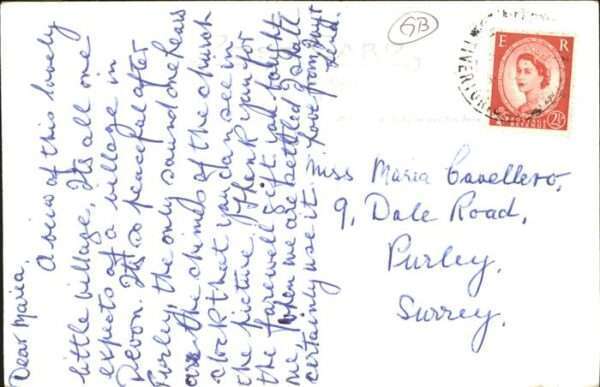 Dear Maria,
A view of this lovely
little village. Its all one
expects of a village in
Devon. Its so peaceful after
Purley, the only sound one hears
are the chimes of the church
clock that you can see in
the picture. Thank you for
the farewell gift you bought
me, when we are settled I shall
certainly use it. Love from
GB
E R
2½
Miss Maria Cavellero,
9, Dale Road,
Purley,
Surrey.